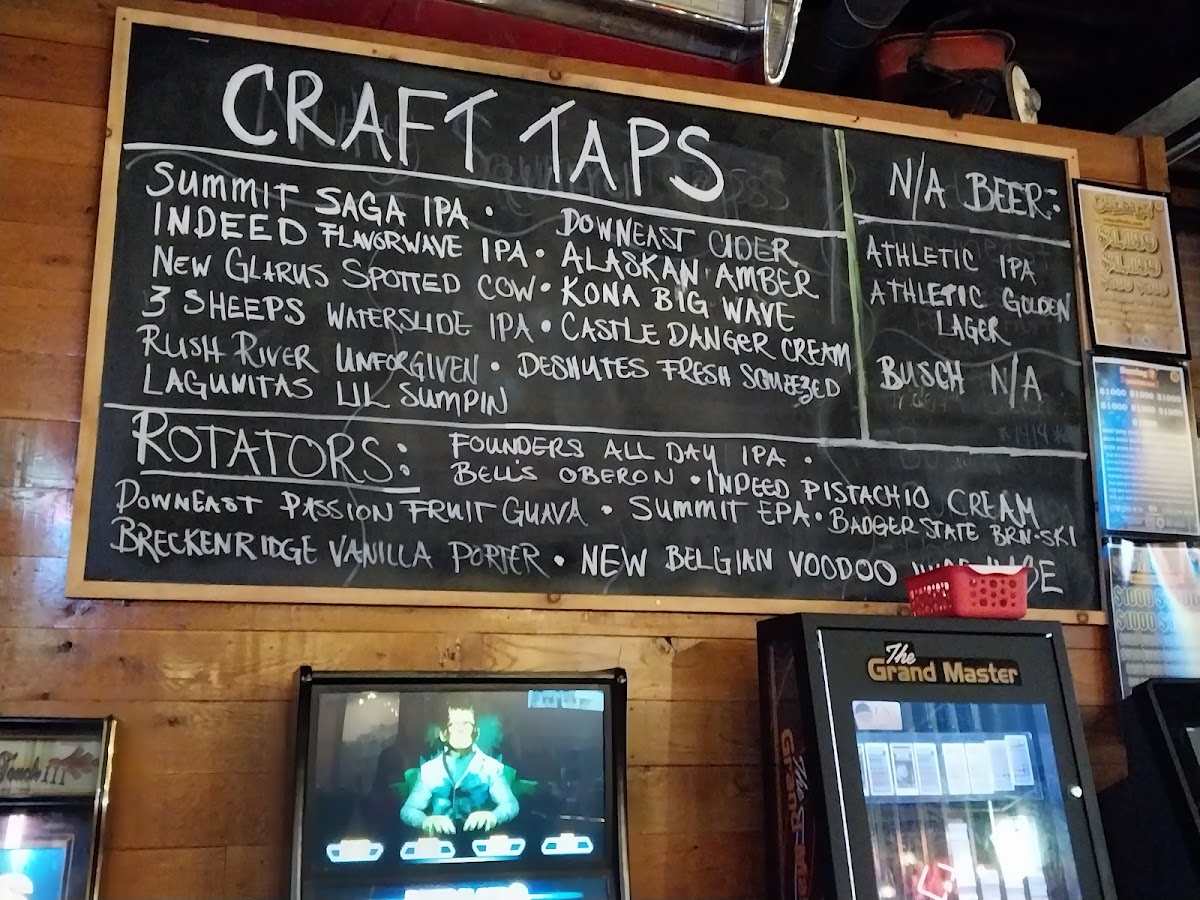 CRAFT TAPS
SUMMIT SAGA IPA •
DOWNEAST CIDER
INDEED FLAVORWAVE IPA • ALASKAN AMBER
NEW GLARUS SPOTTED COW • KONA BIG WAVE
3 SHEEPS WATERSLIDE IPA • CASTLE DANGER CREAM
RUSH RIVER UNFORGIVEN • DESHUTES FRESH SQUEEZED
LAGUNITAS LIL SUMPIN
N/A BEER:
ATHLETIC IPA
ATHLETIC GOLDEN
LAGER
BUSCH N/A
ROTATORS: FOUNDERS ALL DAY IPA •
BELL'S OBERON • INDEED PISTACHIO CREAM
DOWNEAST PASSION FRUIT GUAVA • SUMMIT EPA • BADGER STATE BRN-SKI
BRECKENRIDGE VANILLA PORTER • NEW BELGIAN VOODOO
The
Grand Master
Touch III
$1000 $1000 $1000
$1000 $1000 $1000